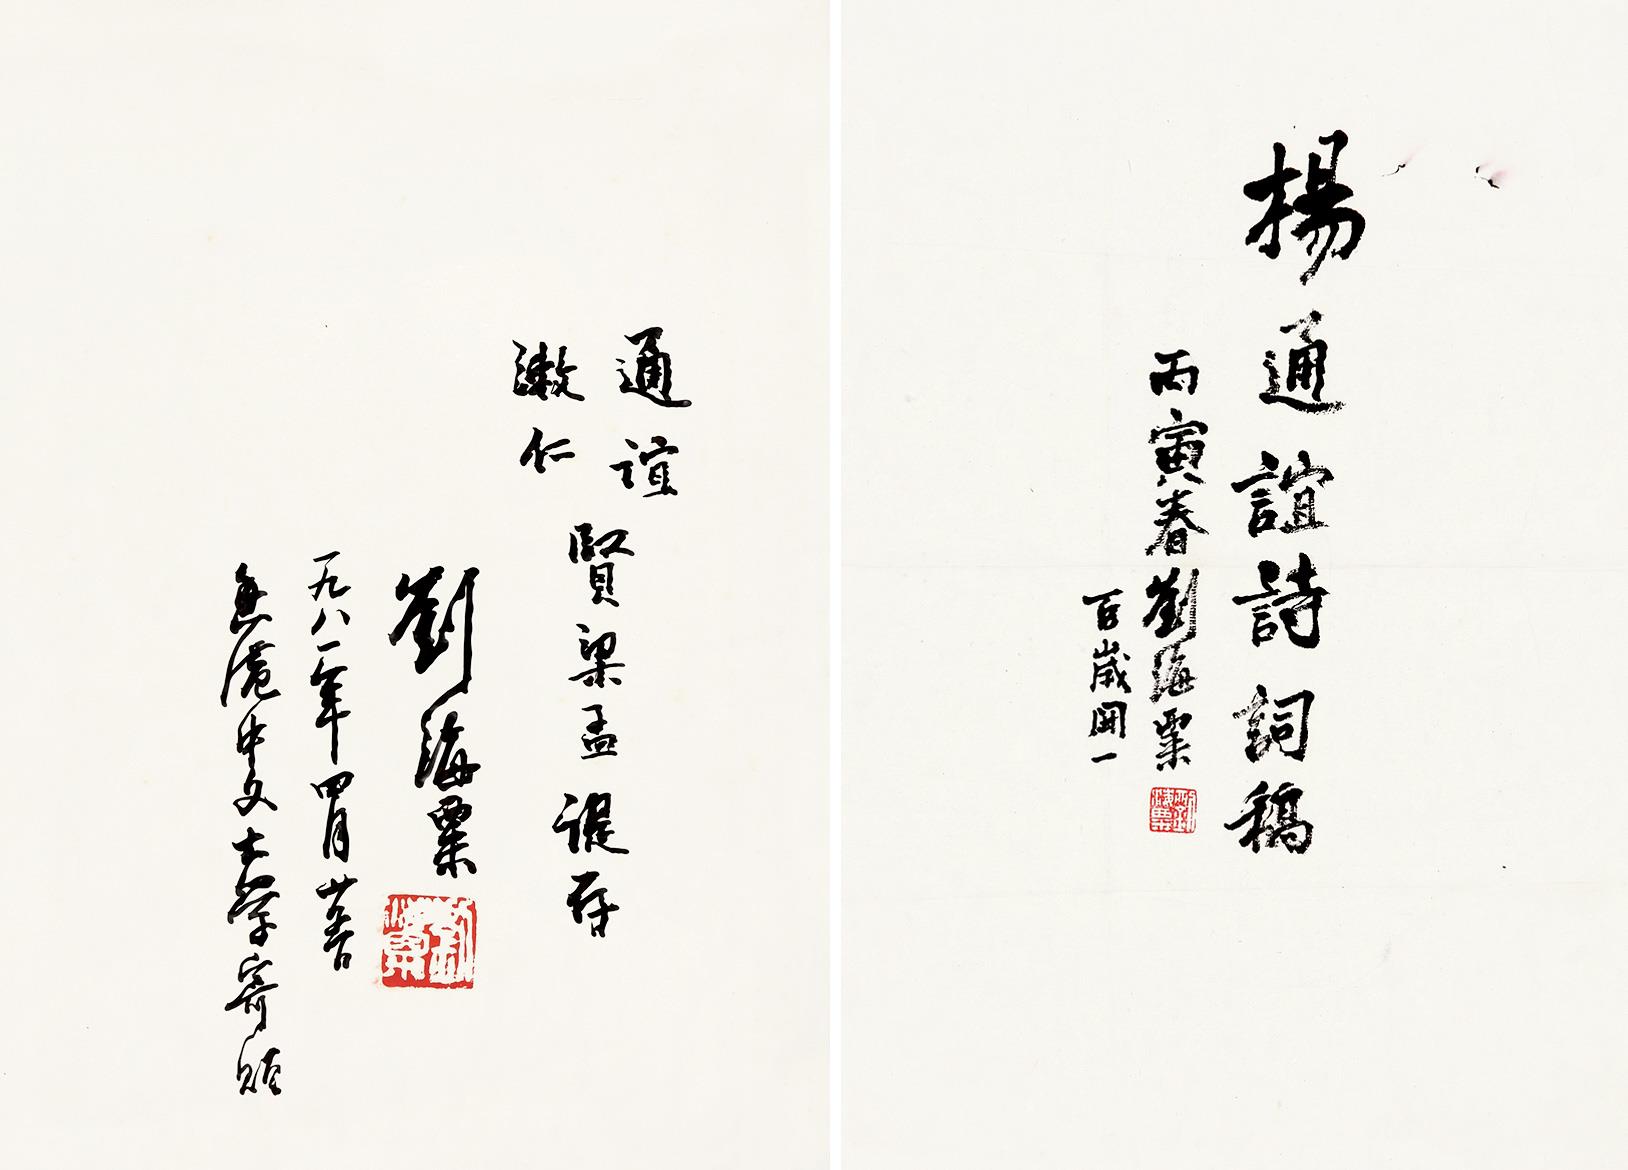 楊通誼詩詞稿
丙寅春劉海粟
百歲開一
劉海粟
通誼
漱仁
賢梁孟諟存
劉海粟
劉海粟
一九八一年四月廿日
香港中文大學寄